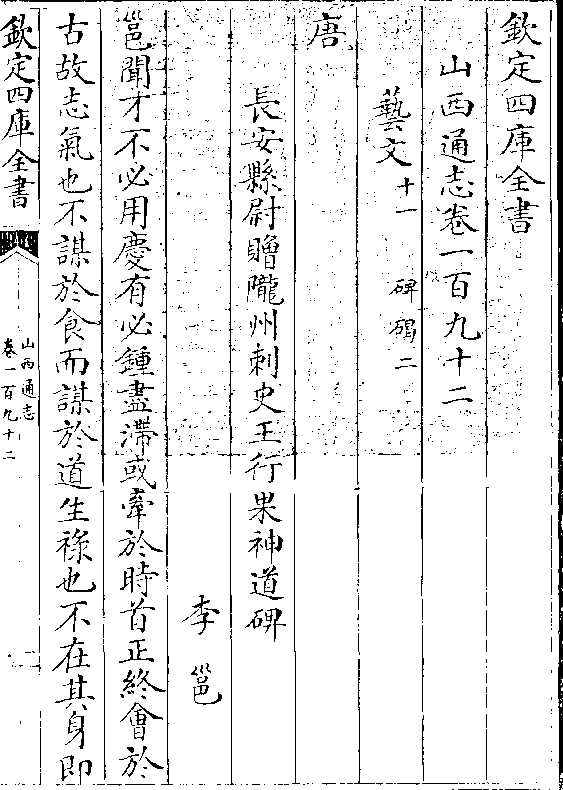 欽定四庫全書
山西通志卷一百九十二
藝文 十一 碑碣二
唐
長安縣尉贈隴州刺史王行果神道碑
李邕
邕聞才不必用慶有必鍾盡滯或牽於時首正終會於
古故志氣也不謀於食而謀於道生祿也不在其身即
欽定四庫全書
山西通志
卷一百九十二
一